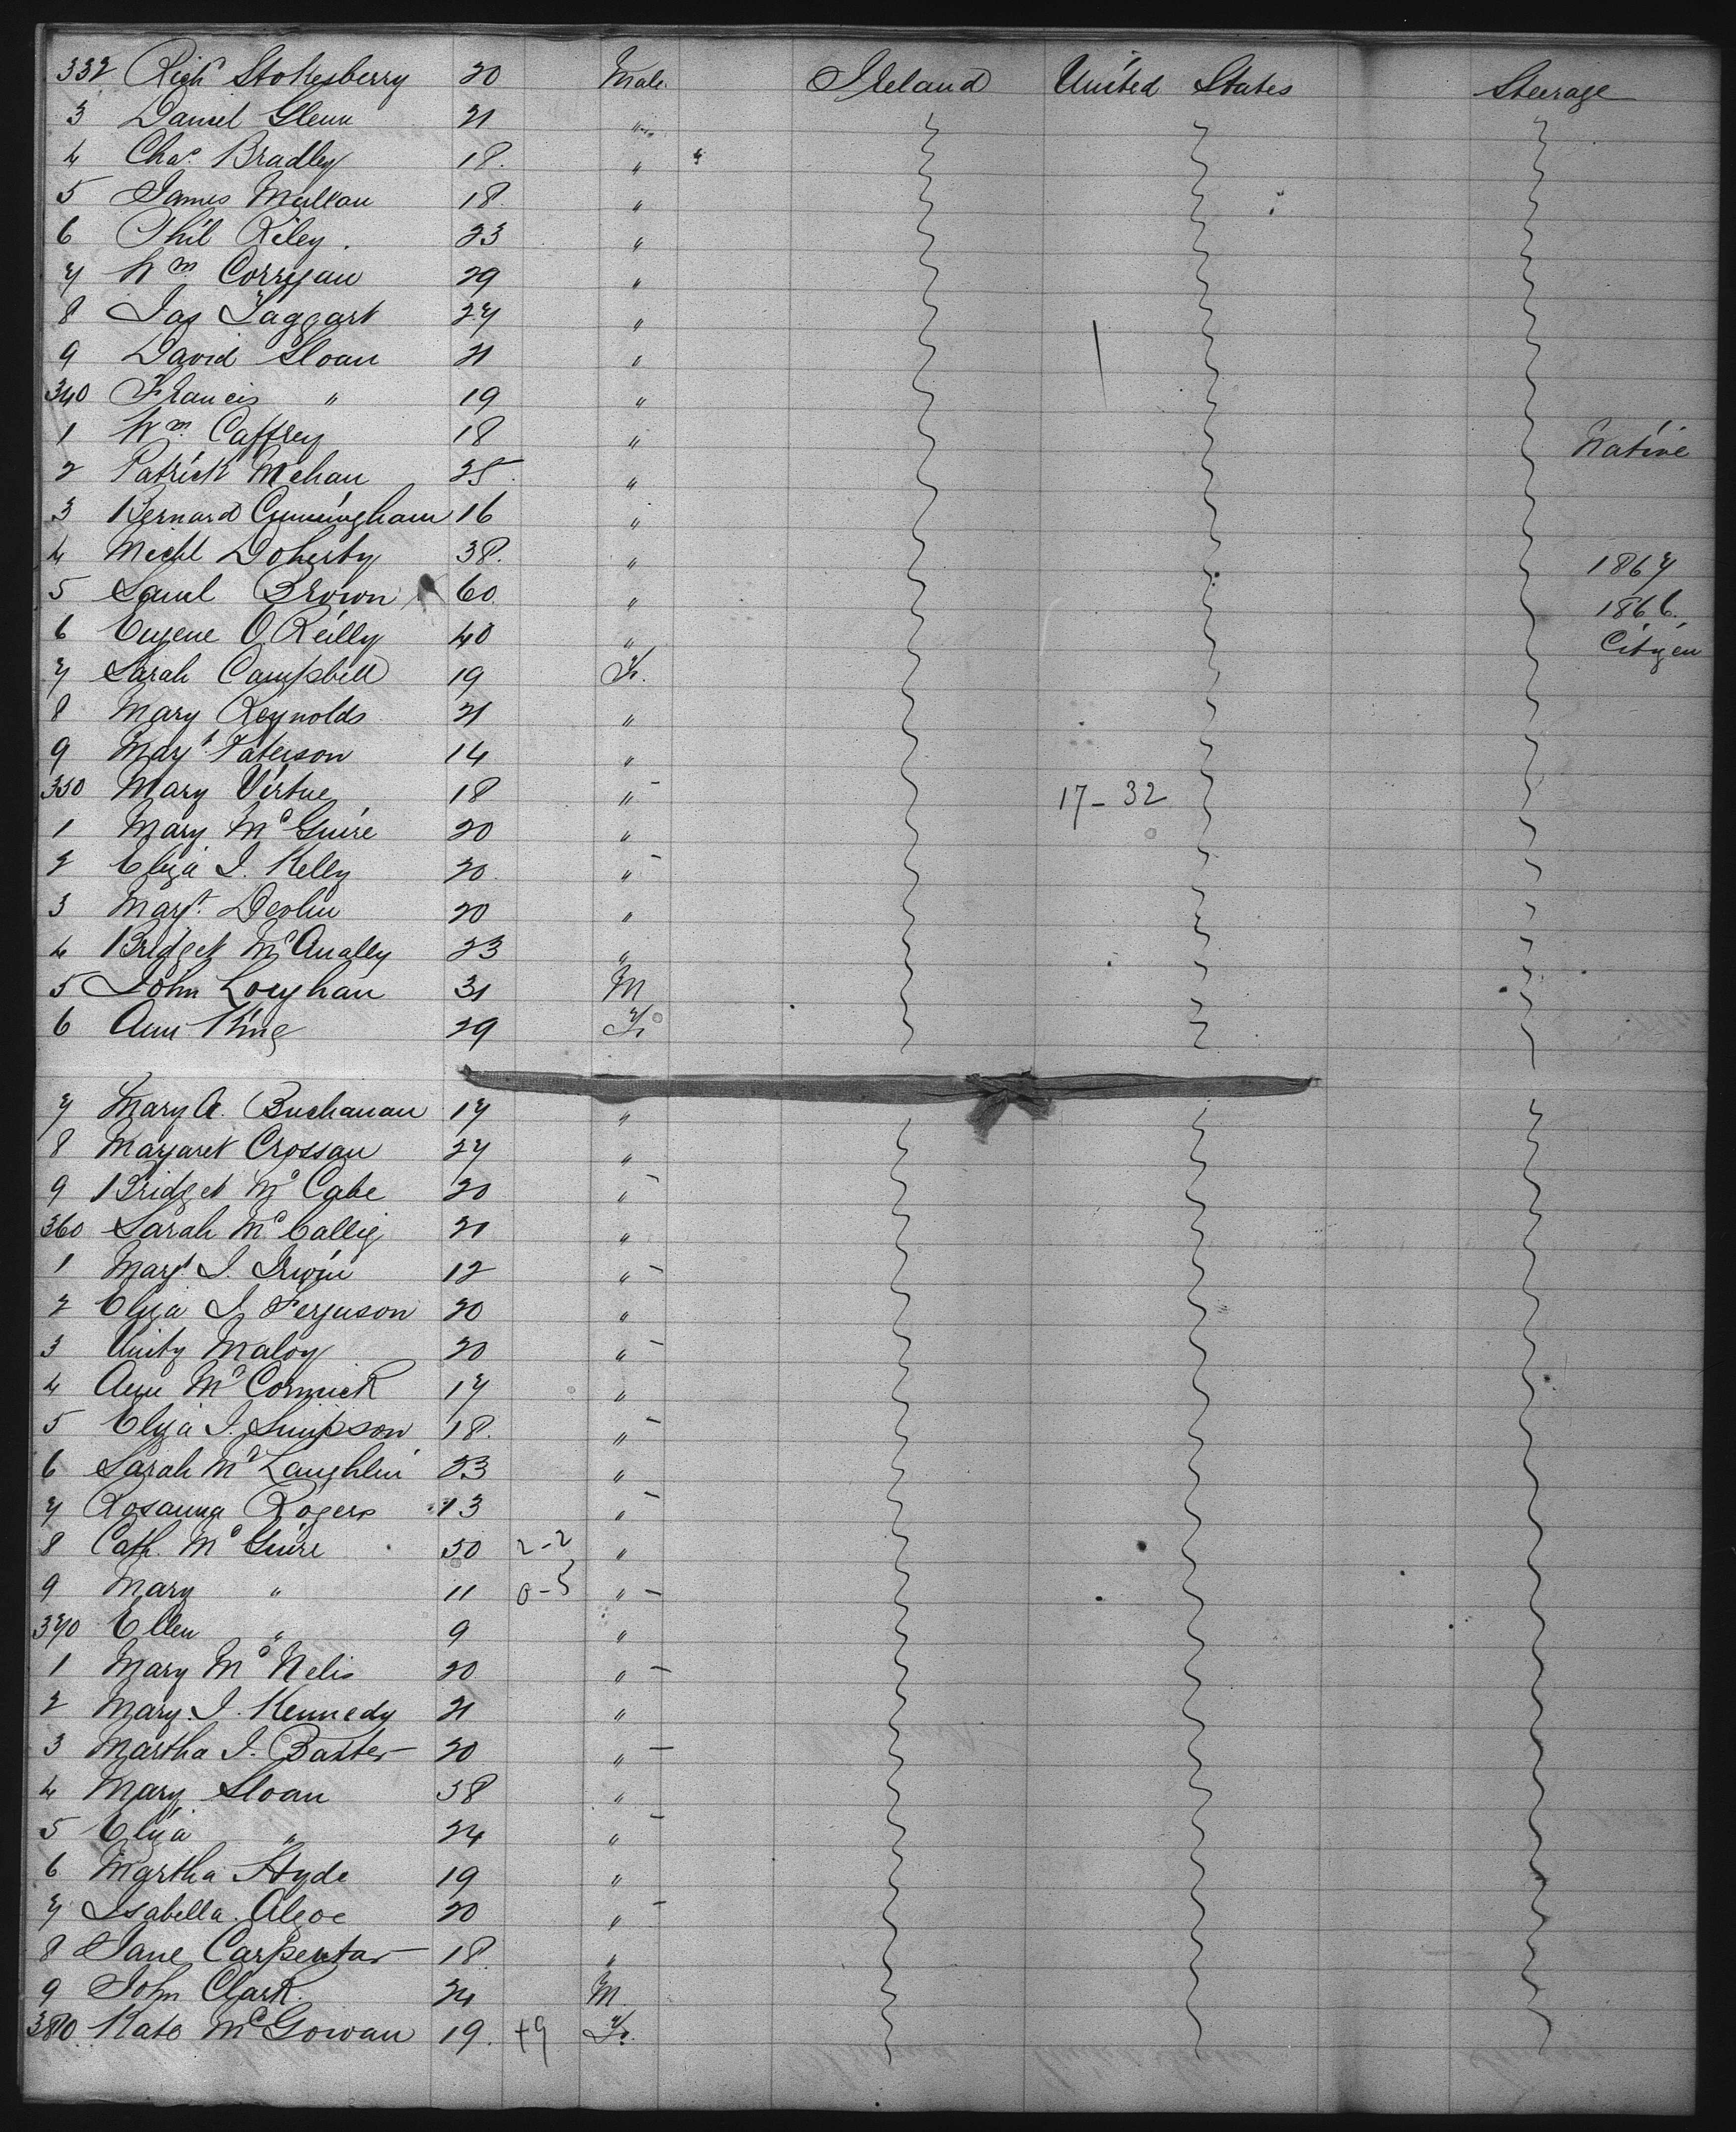 332 Richd Stokesberry 20 Male Ireland United States Steerage
3 Daniel Glenn 21 "
4 Chas. Bradley 18. "
5 James Mullan 18. "
6 Phil Riley. 23 "
7 Wm Corrigan 29 "
8 Jas Taggart 27 "
9 David Sloan 21 "
340 Francis " 19 "
1 Wm. Caffrey 18 " Native
2 Patrick Mehan 25. "
3 Bernard Cunningham 16 "
4 Michl Doherty 38. " 1867
5 Saml Brown 60. " 1866.
6 Eugene O'Reilly 40 " Citizen
7 Sarah Campbell 19 F.
8 Mary Reynolds 21 "
9 Margt. Paterson 14 "
350 Mary Virtue 18 " 17-32
1 Mary McGuire 20 "
2 Eliza J. Kelly 20. "
3 Margt. Devlin 20 "
4 Bridget McAnally 23 "
5 John Loughan 31 M
6 Ann King 29 F
7 Mary A. Buchanan 17 "
8 Margaret Crossan 27 "
9 Bridget McCabe 20 "
360 Sarah McCallig 21 "
1 Margt. J. Irwin 12 "
2 Eliza J. Ferguson 20 "
3 Unity Maloy 20 "
4 Ann McCormick 17 "
5 Eliza J. Simpson 18. "
6 Sarah McLaughlin 23 "
7 Rosanna Rogers 13 "
8 Cath. McGuire 50 2-2 "
9 Mary " 11 0-5 "
370 Ellen " 9 "
1 Mary McNelis 20 "
2 Mary J. Kennedy 21 "
3 Martha J. Baxter 20 "
4 Mary Sloan 58 "
5 Eliza " 24 "
6 Martha Hyde 19 "
7 Isabella Algoe 20 "
8 Jane Carpentar 18. "
9 John Clark. 24 M
380. Kate McGowan 19. +9 F.